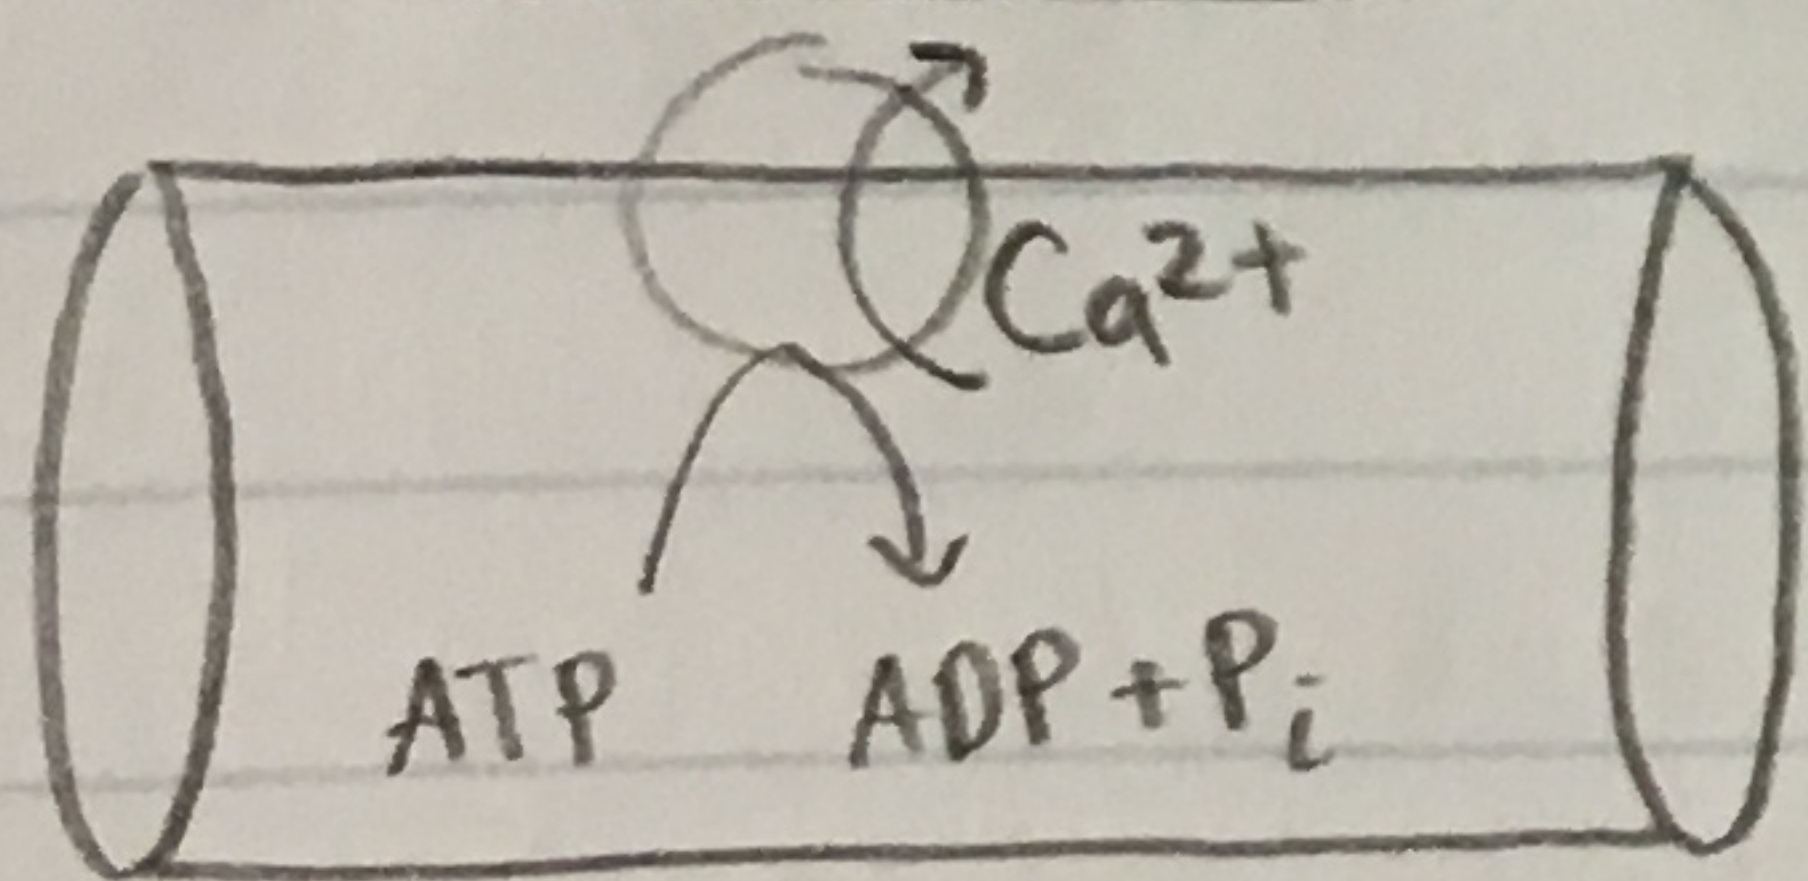 Ca²⁺
ATP ADP + Pᵢ